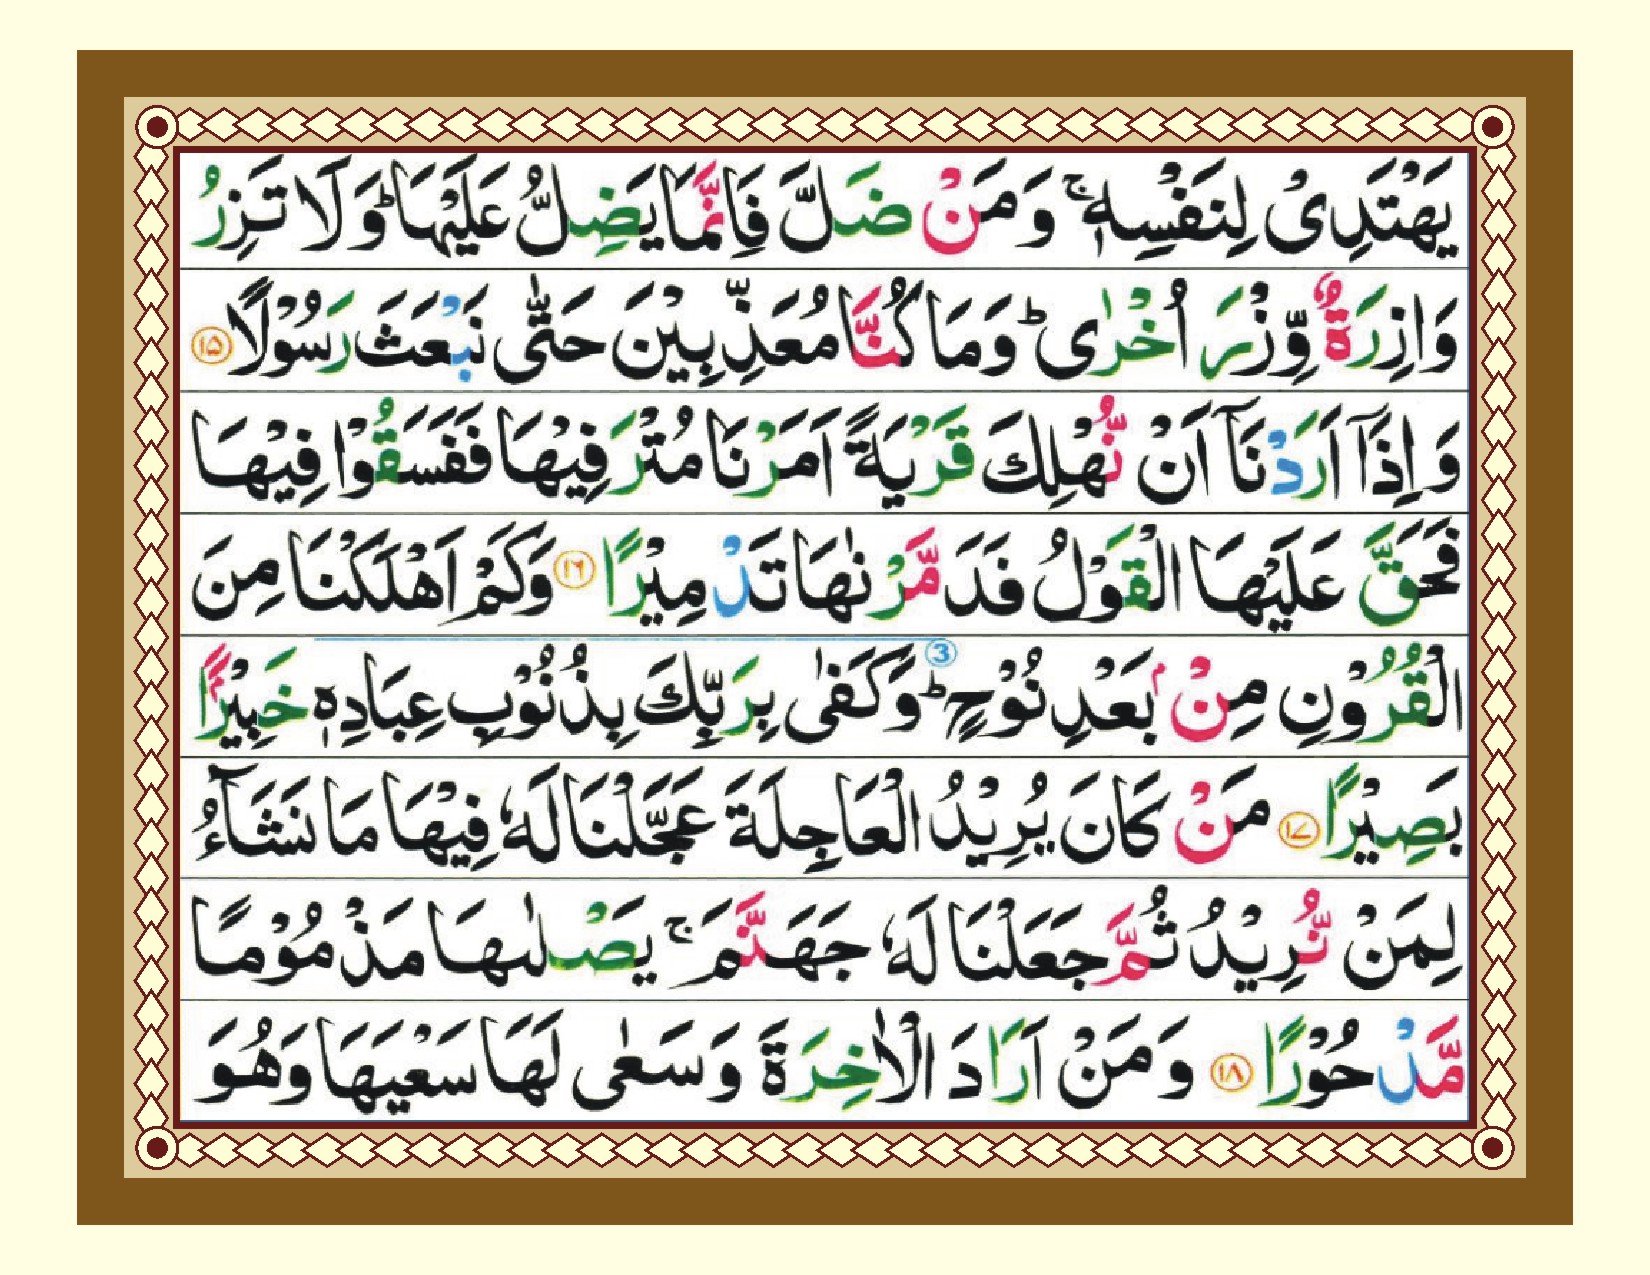 يَهْتَدِىْ لِنَفْسِهٖ ۚ وَمَنْ ضَلَّ فَاِنَّمَا يَضِلُّ عَلَيْهَا ؕ وَلَا تَزِرُ
وَازِرَةٌ وِّزْرَ اُخْرٰى ؕ وَمَا كُنَّا مُعَذِّبِيْنَ حَتّٰى نَبْعَثَ رَسُوْلًا ۝۱۵
وَاِذَاۤ اَرَدْنَاۤ اَنْ نُّهْلِكَ قَرْيَةً اَمَرْنَا مُتْرَفِيْهَا فَفَسَقُوْا فِيْهَا
فَحَقَّ عَلَيْهَا الْقَوْلُ فَدَمَّرْنٰهَا تَدْمِيْرًا ۝۱۶ وَكَمْ اَهْلَكْنَا مِنَ
الْقُرُوْنِ مِنْۢ بَعْدِ نُوْحٍ ؕ ③ وَكَفٰى بِرَبِّكَ بِذُنُوْبِ عِبَادِهٖ خَبِيْرًاۢ
بَصِيْرًا ۝۱۷ مَنْ كَانَ يُرِيْدُ الْعَاجِلَةَ عَجَّلْنَا لَهٗ فِيْهَا مَا نَشَآءُ
لِمَنْ نُّرِيْدُ ثُمَّ جَعَلْنَا لَهٗ جَهَنَّمَ ۚ يَصْلٰىهَا مَذْمُوْمًا
مَّدْحُوْرًا ۝۱۸ وَمَنْ اَرَادَ الْاٰخِرَةَ وَسَعٰى لَهَا سَعْيَهَا وَهُوَ